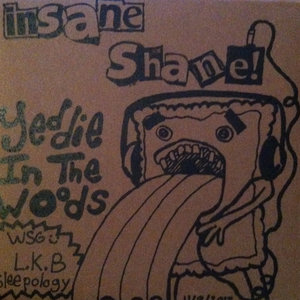 insane
Shane!
Yeddie
In The
Woods
WSG:
L.K.B
Sleepology